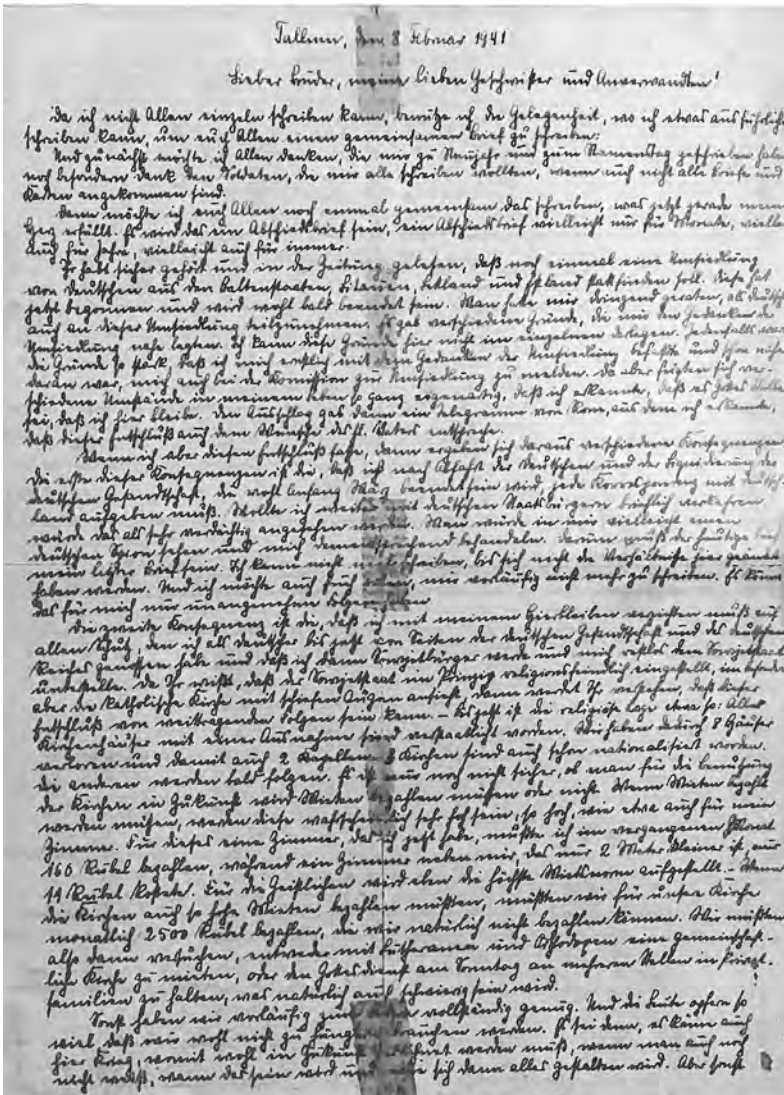 Tallinn, den 8 Februar 1941
Lieber Bruder, meine lieben Geschwister und Anverwandten!
Da ich nicht Allen einzeln schreiben kann, benutze ich die Gelegenheit, wo ich etwas ausführlicher
schreiben kann, um euch Allen einen gemeinsamen Brief zu schreiben:
Und zunächst möchte ich Allen danken, die mir zu Neujahr und zum Namenstag geschrieben haben
noch besondern Dank den Soldaten, die mir alle schreiben wollten, wenn auch nicht alle Briefe und
Karten angekommen sind.
Dann möchte ich euch Allen noch einmal gemeinsam das schreiben, was jetzt gerade mein
Herz erfüllt. Es wird das ein Abschiedsbrief sein, ein Abschiedsbrief vielleicht nur für Monate, vielleicht
auch für Jahre, vielleicht auch für immer.
Ihr habt sicher gehört und in der Zeitung gelesen, daß noch einmal eine Umsiedlung
von Deutschen aus den Baltenstaaten, Litauen, Lettland und Estland stattfinden soll. Diese hat
jetzt begonnen und wird wohl bald beendet sein. Man hatte mir dringend geraten, als Deutscher
auch an dieser Umsiedlung teilzunehmen. Es gab verschiedene Gründe, die mir den Gedanken der
Umsiedlung nahe legten. Ich kann diese Gründe hier nicht im einzelnen darlegen. Jedenfalls waren
die Gründe so stark, daß ich mich ernstlich mit dem Gedanken der Umsiedlung befaßte und schon nahe
daran war, mich auch bei der Komission zur Umsiedlung zu melden. Da aber zeigten sich ver-
schiedene Umstände in meinem Leben so ganz eigenartig, daß ich erkannte, daß es Gottes Wille
sei, daß ich hier bleibe. Den Ausschlag gab dann ein Telegramm von Rom, aus dem ich erkannte,
daß dieser Entschluß auch dem Wunsche des hl. Vaters entspreche.
Wenn ich aber diesen Entschluß fasse, dann ergeben sich daraus verschiedene Konsequenzen
Die erste dieser Konsequenzen ist die, daß ich nach Abfahrt der Deutschen und der Liquidierung der
deutschen Gesandtschaft, die wohl Anfang März beendet sein wird, jede Korrespondenz mit Deutsch-
land aufgeben muß. Wollte ich weiter mit deutschen Staatsbürgern brieflich verkehren
würde das als sehr verdächtig angesehen werden. Man würde in mir vielleicht einen
deutschen Spion sehen und mich dementsprechend behandeln. Darum muß der heutige Brief
mein letzter Brief sein. Ich kann nicht mehr schreiben, bis sich nicht die Verhältnisse hier geändert
haben werden. Und ich möchte auch Euch bitten, mir vorläufig nicht mehr zu schreiben. Es könnte
das für mich nur unangenehme Folgen haben
Die zweite Konsequenz ist die, daß ich mit meinem Hierbleiben verzichten muß auf
allen Schutz, den ich als Deutscher bis jetzt von Seiten der deutschen Gesandtschaft und des deutschen
Reiches genossen habe und daß ich dann Sowjetbürger werde und mich restlos dem Sowjetstaat
unterstelle. Da Ihr wißt, daß der Sowjetstaat im Prinzip religionsfeindlich eingestellt, im besondern
aber die katholische Kirche mit schiefen Augen ansieht, dann werdet Ihr verstehen, daß dieser
Entschluß von weittragenden Folgen sein kann. – Es jetzt ist die religiöse Lage etwa so: Alle
Kirchenhäuser mit einer Ausnahme sind verstaatlicht worden. Wir haben dadurch 8 Häuser
verloren und damit auch 2 Kapellen. Kirchen sind auch schon nationalisiert worden.
Die anderen werden bald folgen. Es ist nur noch nicht sicher, ob man für die Benutzung
der Kirchen in Zukunft wird Mieten bezahlen müssen oder nicht. Wenn Mieten bezahlt
werden müssen, werden diese wahrscheinlich sehr hoch sein, so hoch, wie etwa auch für mein
Zimmer. Für dieses eine Zimmer, das ich jetzt habe, mußte ich im vergangenen Monat
160 Rubel bezahlen, während ein Zimmer neben mir, das nur 2 Meter kleiner ist, nur
19 Rubel kostete. Für die Geistlichen wird eben die höchste Mietsnorm aufgestellt. – Wenn
die Kirchen auch so hohe Mieten bezahlen müßten, müßten wir für unsere Kirche
monatlich 2500 Rubel bezahlen, die wir natürlich nicht bezahlen können. Wir müßten
also dann versuchen, entweder mit Lutheranern und Orthodoxen eine gemeinschaft-
liche Kirche zu mieten, oder den Gottesdienst am Sonntag an mehreren Stellen in Privat-
familien zu halten, was natürlich auch schwierig sein wird.
Sonst haben wir vorläufig zum vollständig genug. Und die Leute opfern so
viel daß wir wohl nicht zu hungern brauchen werden. Es sei denn, es käme auch
hier Krieg, womit wohl in Zukunft gerechnet werden muß, wenn man auch noch
nicht weiß, wann das sein wird und wie sich dann alles gestalten wird. Aber sonst